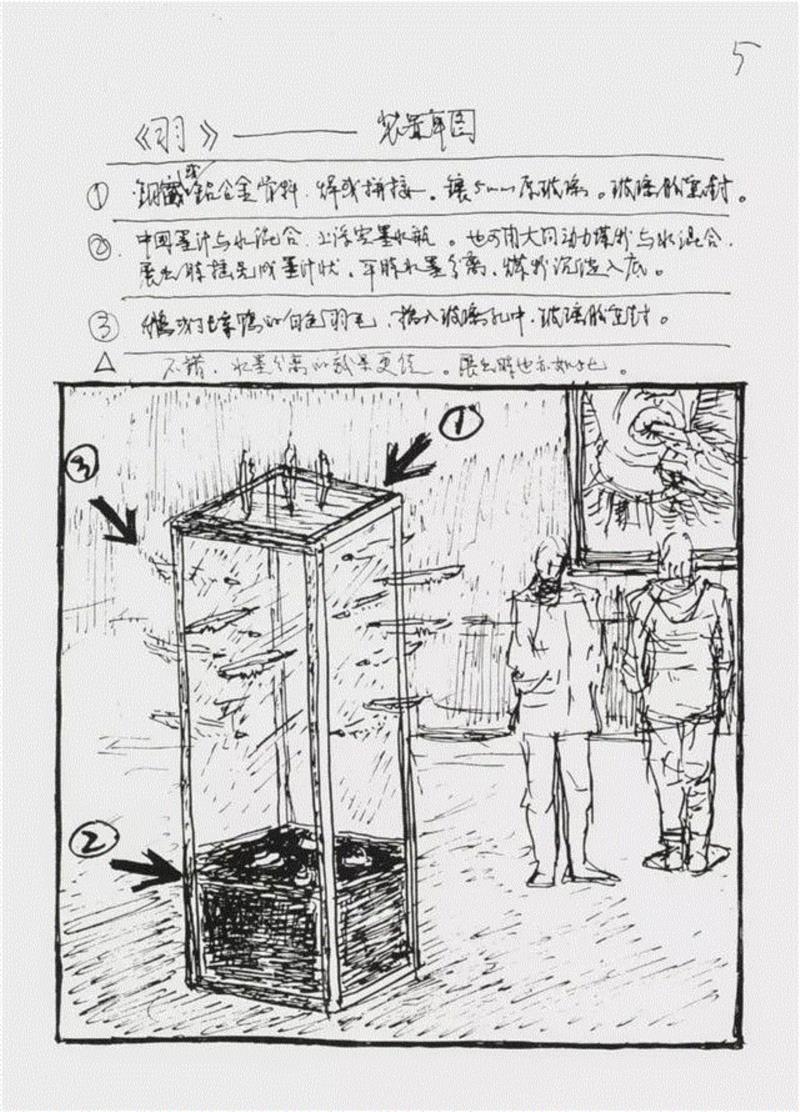 5
《羽》——装置草图
① 钢或铝合金骨料.焊或拼接。镶5mm厚玻璃。玻璃胶密封。
② 中国墨汁与水混合.上浮空墨水瓶。也可用大同动力煤粉与水混合.
展出时搅晃成墨汁状.平时水墨分离.煤粉沉淀入底。
③ 鹅或鸭的白色羽毛.插入玻璃孔中.玻璃胶密封。
△ 不错.水墨分离的效果更佳。展出时也亦如此。
③
①
②